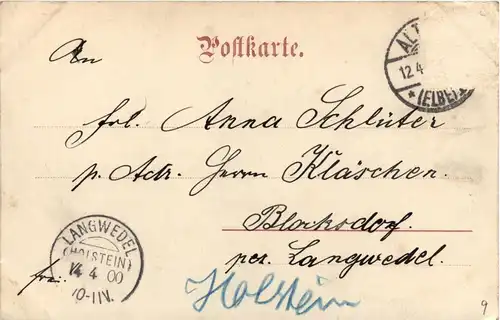 Postkarte.
An
ALT
12.4
*(ELBE)*
Frl. Anna Schlüter
p. Adr. Herrn Kläschen.
Blocksdorf.
per. Langwedel.
frei.
LANGWEDEL
(HOLSTEIN)
14 4 00
10-11V.
Holstein
9